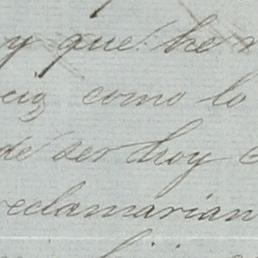 y que he
cia como lo
de ser hoy
reclamarian